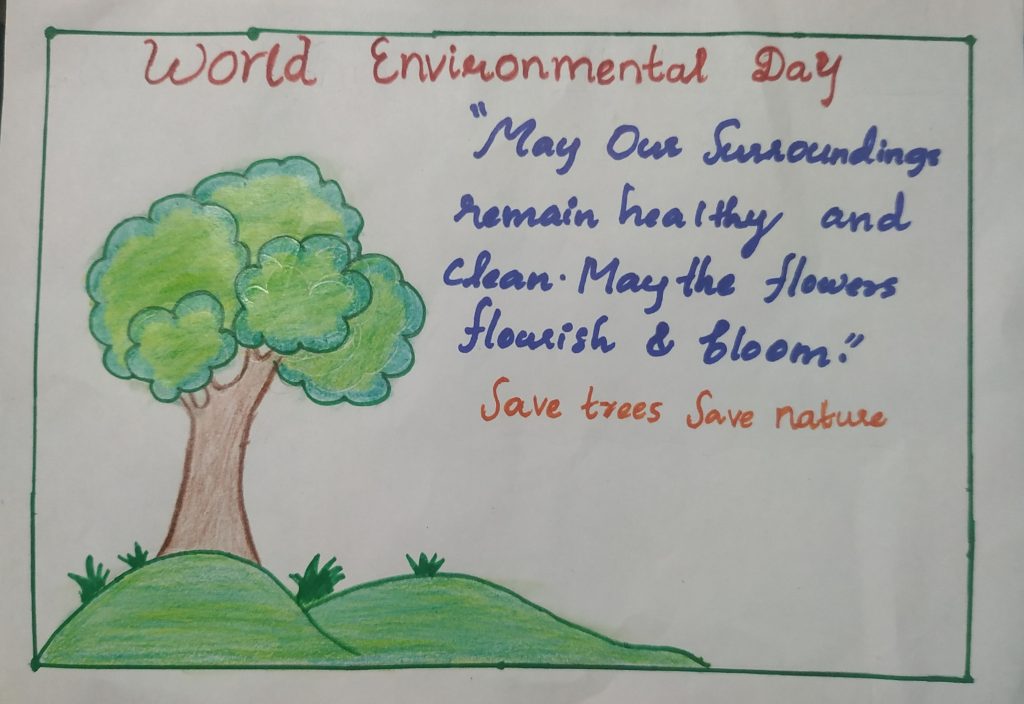 World Environmental Day
"May Our Surroundings
remain healthy and
clean. May the flowers
flourish & bloom."
Save trees Save nature